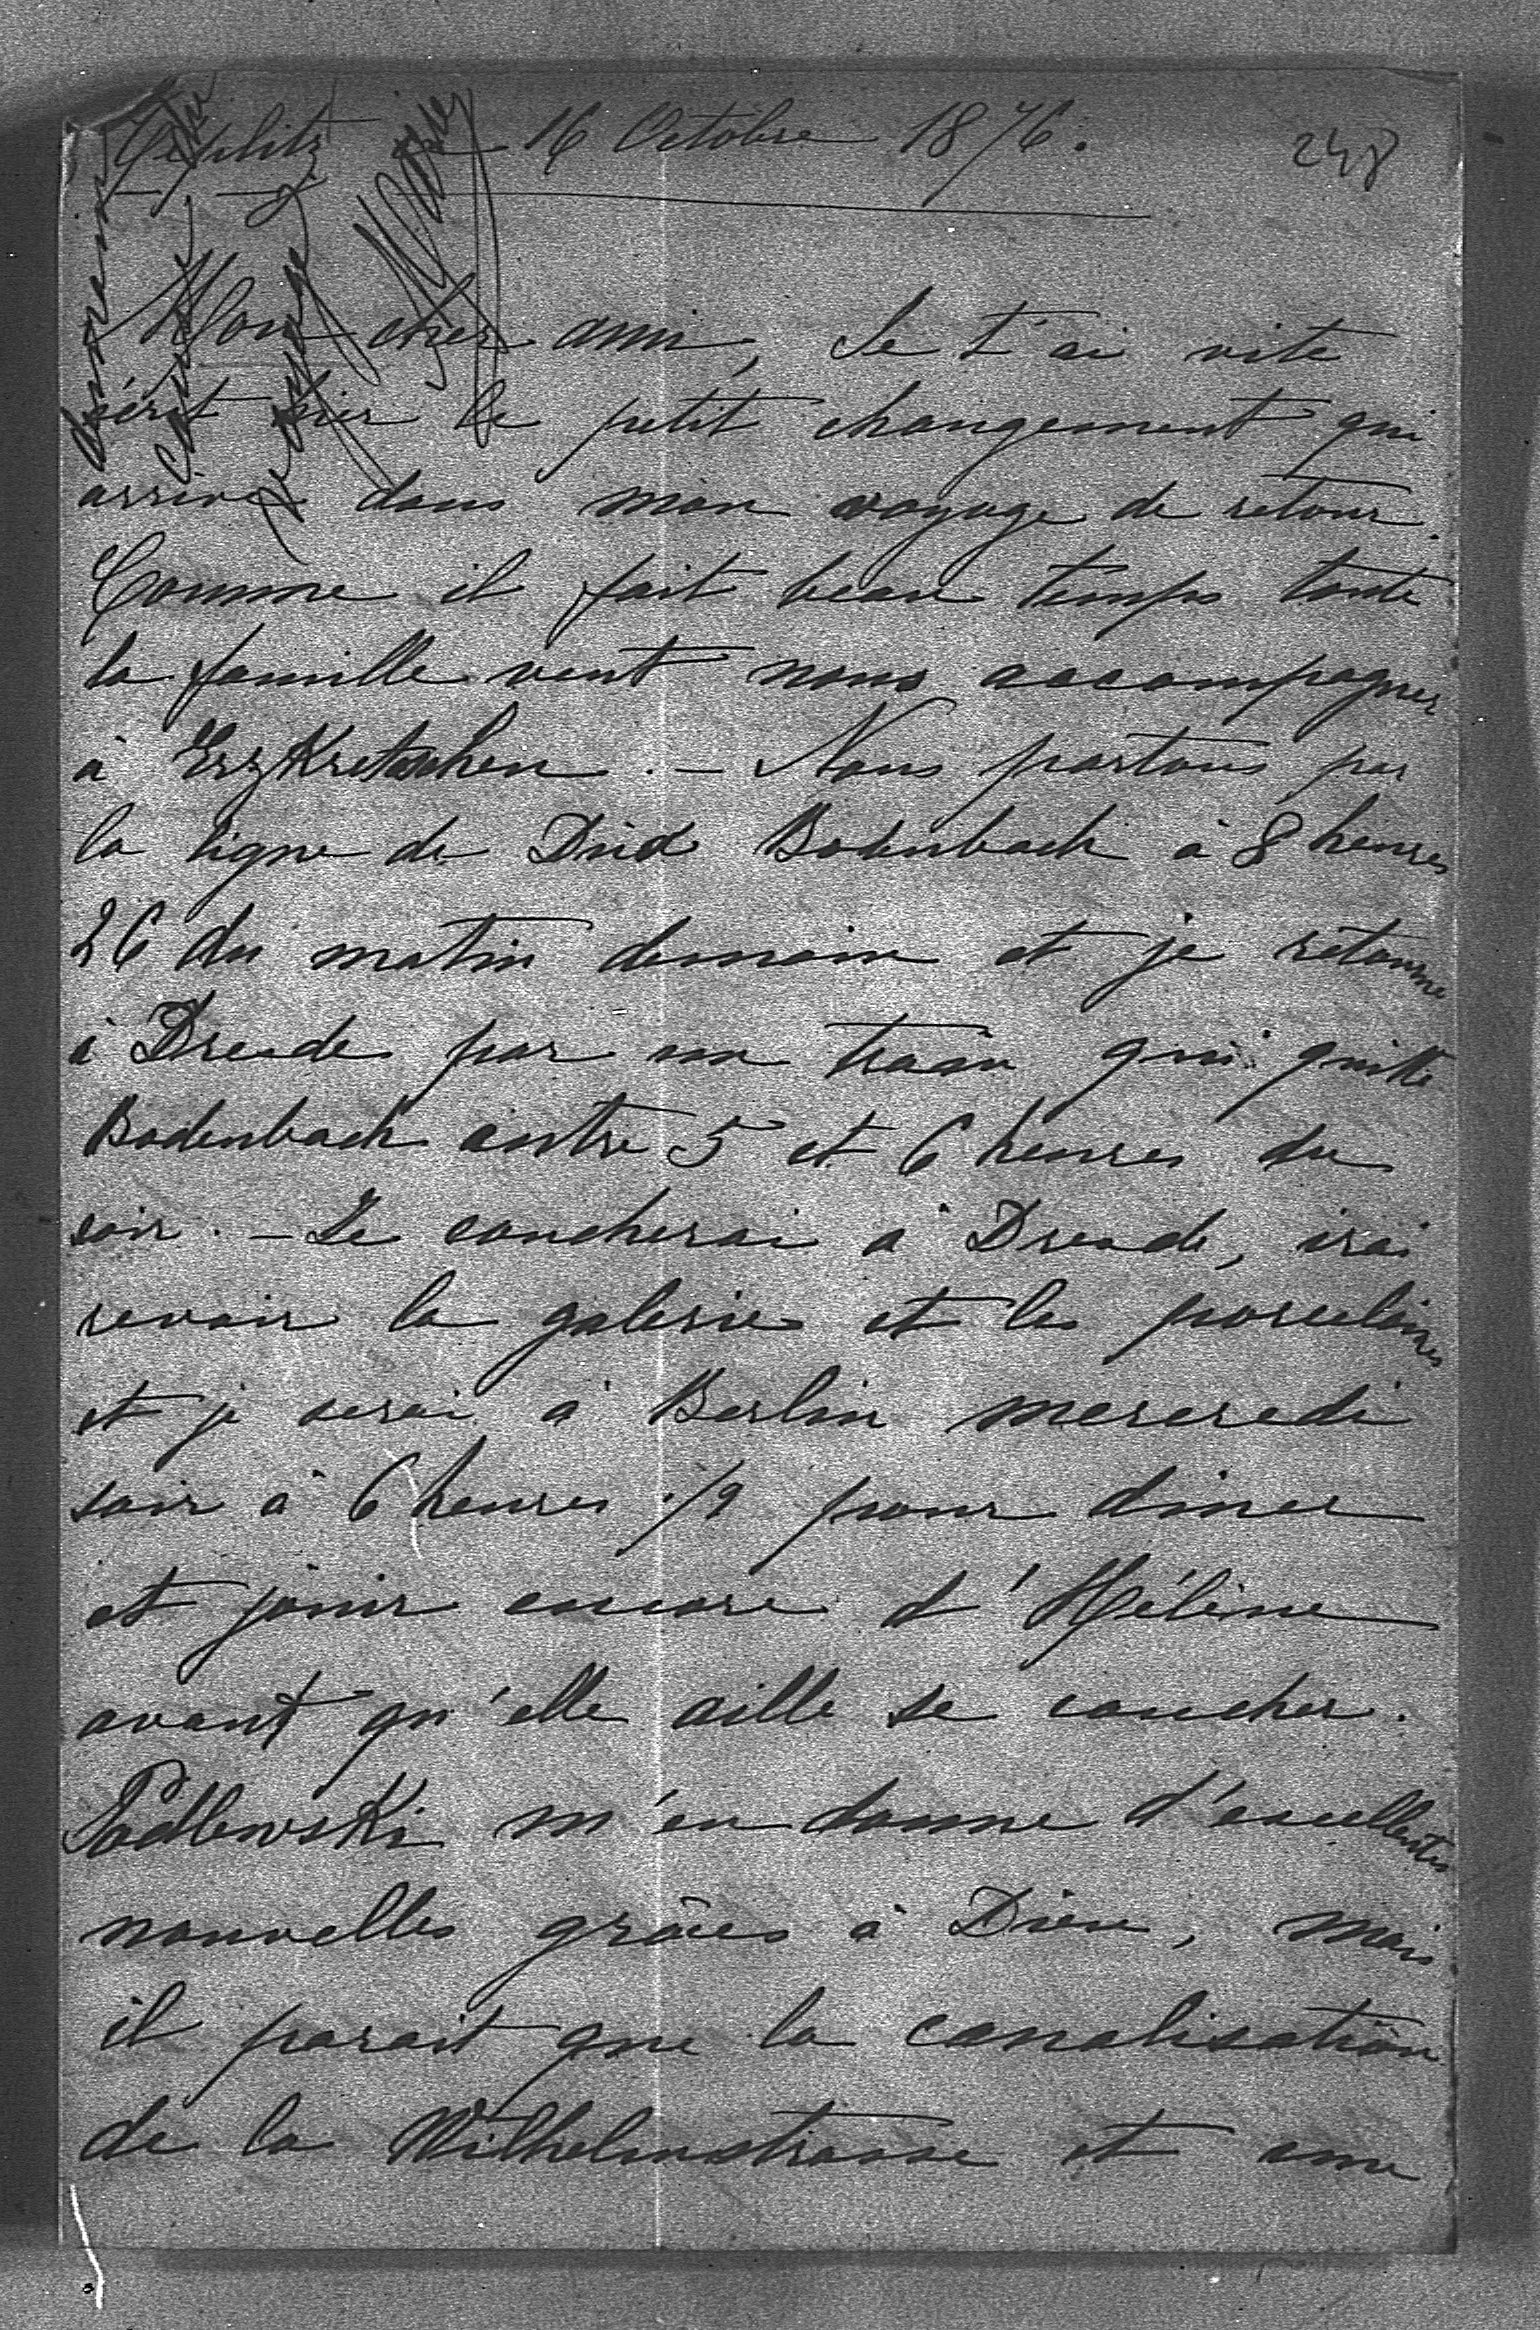 Teplitz ce 16 Octobre 1876.
248
Mon cher ami, Je t'ai vite
écrit hier le petit changement qui
arrive dans mon voyage de retour.
Comme il fait beau temps toute
la famille veut nous accompagner
à Erzkretschen. – Nous partons par
la ligne de Dux Bodenbach à 8 heures
26 du matin demain et je retourne
à Dresde par un train qui quitte
Bodenbach entre 5 et 6 heures du
soir. – Je coucherai à Dresde, irai
revoir la galerie et les porcelaines
et je serai à Berlin mercredi
soir à 6 heures 1/2 pour diner
et jouir encore d'Hélène
avant qu'elle aille se coucher.
Podlewski m'en donne d'excellentes
nouvelles grâces à Dieu, mais
il parait que la canalisation
de la Wilhelmstrasse et une